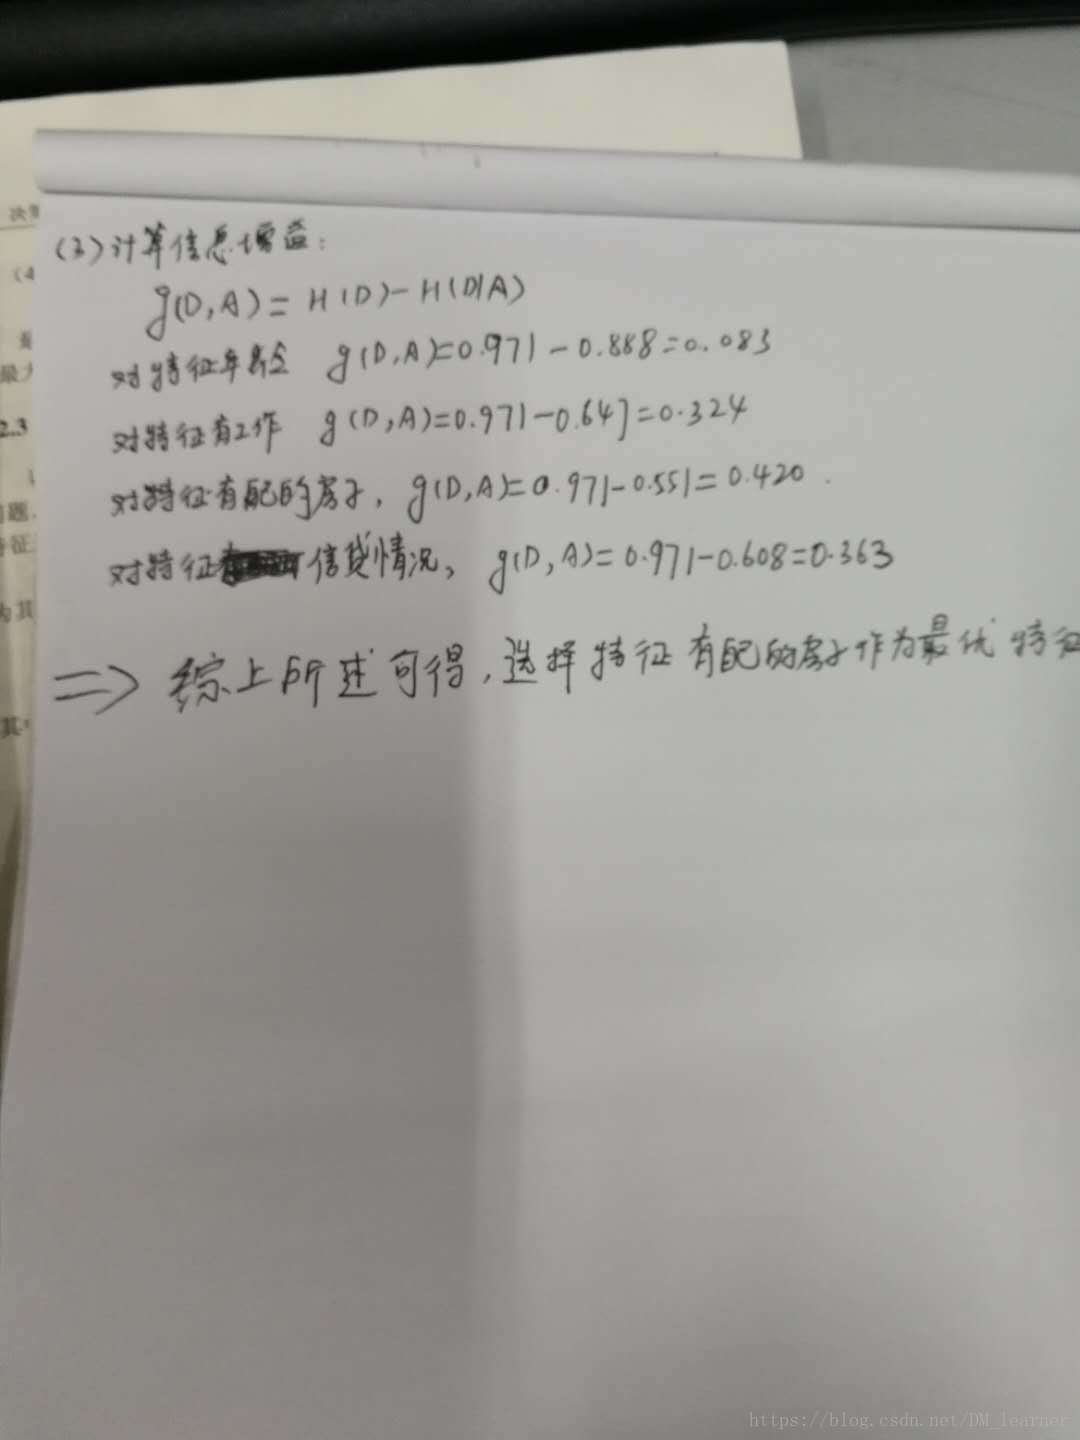 (3)计算信息增益:
g(D,A)=H(D)-H(D|A)
对特征年龄 g(D,A)=0.971-0.888=0.083
对特征有工作 g(D,A)=0.971-0.647=0.324
对特征有配的房子, g(D,A)=0.971-0.551=0.420.
对特征信贷情况, g(D,A)=0.971-0.608=0.363
=> 综上所述可得,选择特征有配的房子作为最优特征
决策
(4
最大
2.3
问题.
特征.
为其
其
https://blog.csdn.net/DM_learner